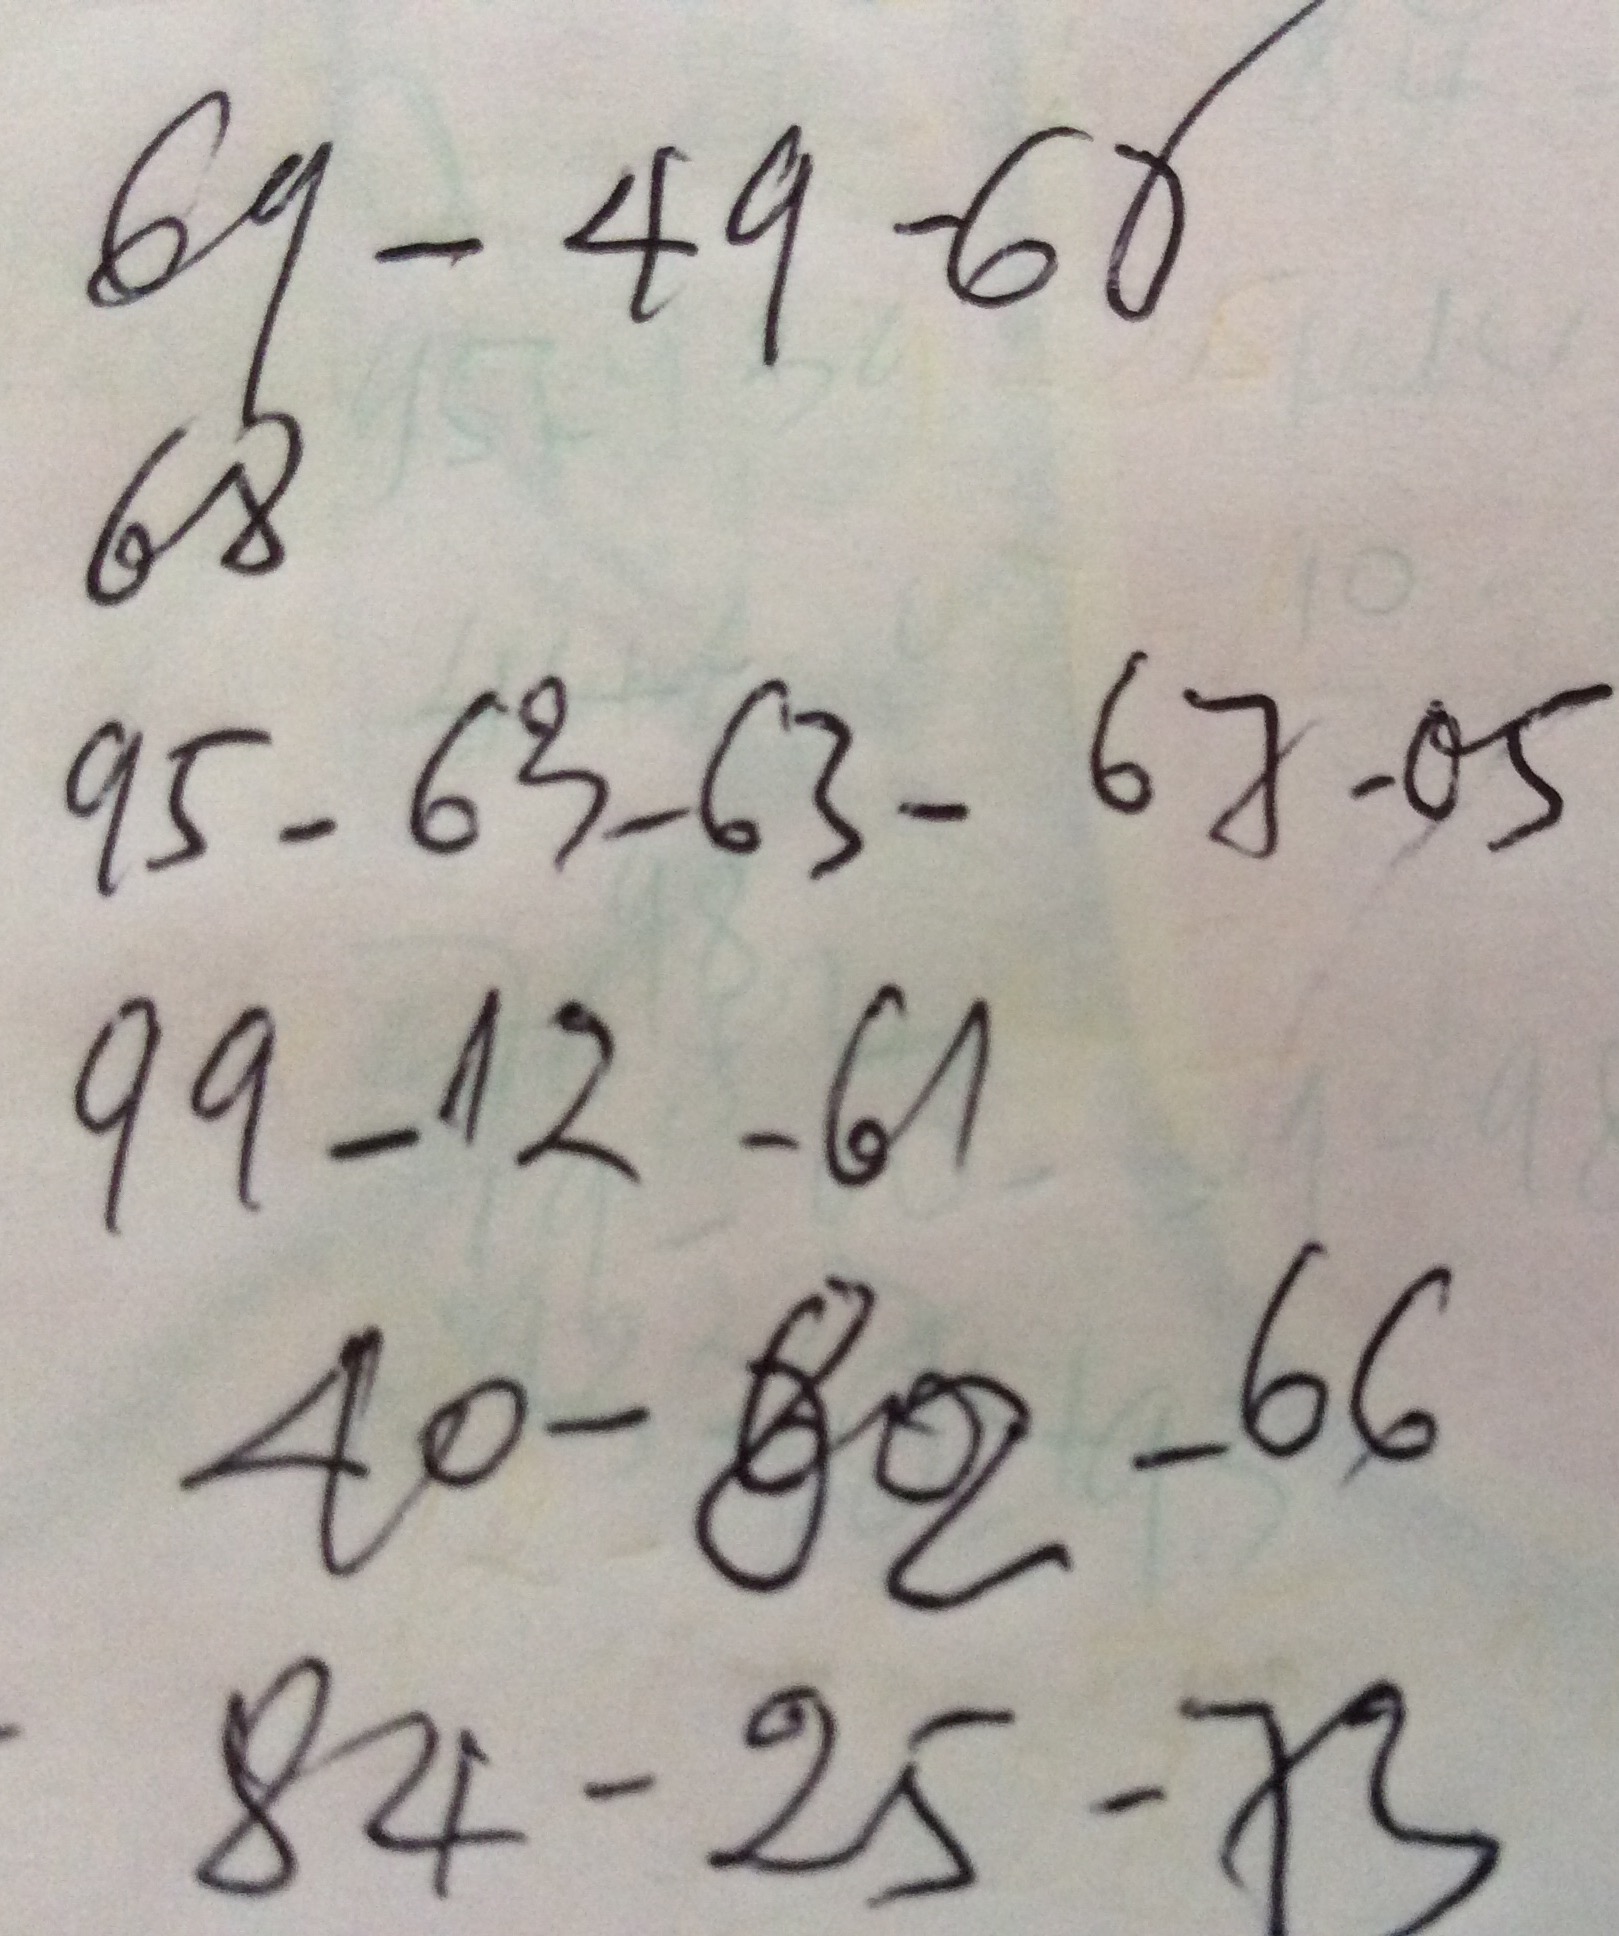 69 - 49 - 60
68
95 - 63 - 63 - 67 - 05
99 - 12 - 61
40 - - 66
84 - 25 - 73